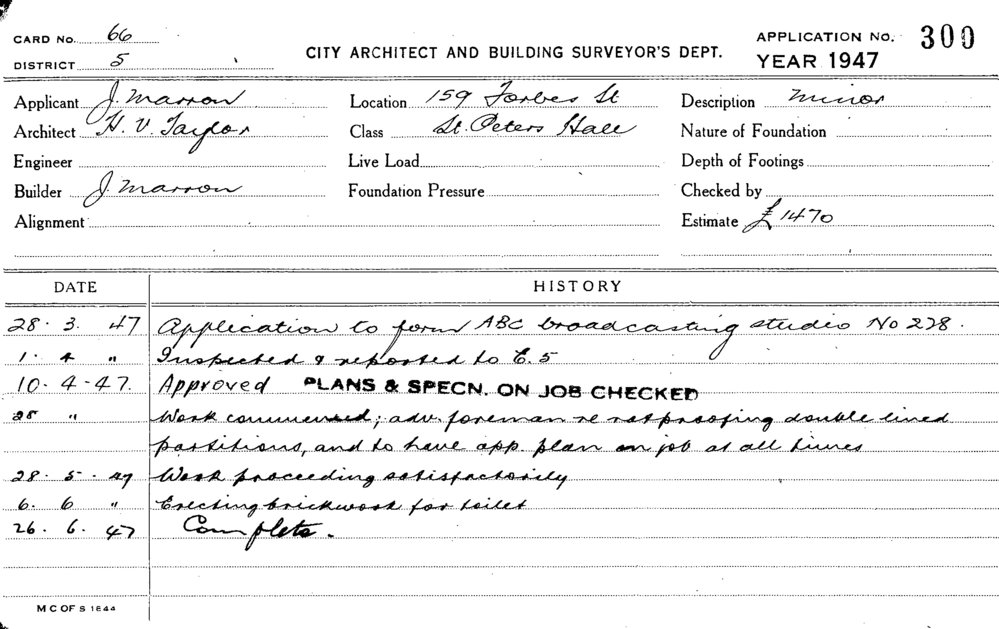 CARD No. 66
DISTRICT 5
CITY ARCHITECT AND BUILDING SURVEYOR'S DEPT.
APPLICATION No. 300
YEAR 1947
Applicant J. Marron Location 159 Forbes St Description Minor
Architect H. V. Taylor Class St. Peters Hall Nature of Foundation
Engineer Live Load Depth of Footings
Builder J. Marron Foundation Pressure Checked by
Alignment Estimate £1470
DATE HISTORY
28. 3. 47 Application to form ABC broadcasting studio No 228.
1. 4 " Inspected & reported to E.5
10-4-47. Approved PLANS & SPECN. ON JOB CHECKED
28 " Work commenced; adv. foreman re ratproofing double lined
partitions, and to have app. plan on job at all times
28. 5. 47 Work proceeding satisfactorily
6. 6 " Erecting brickwork for toilet
26. 6. 47 Complete.
M C OF S 1644